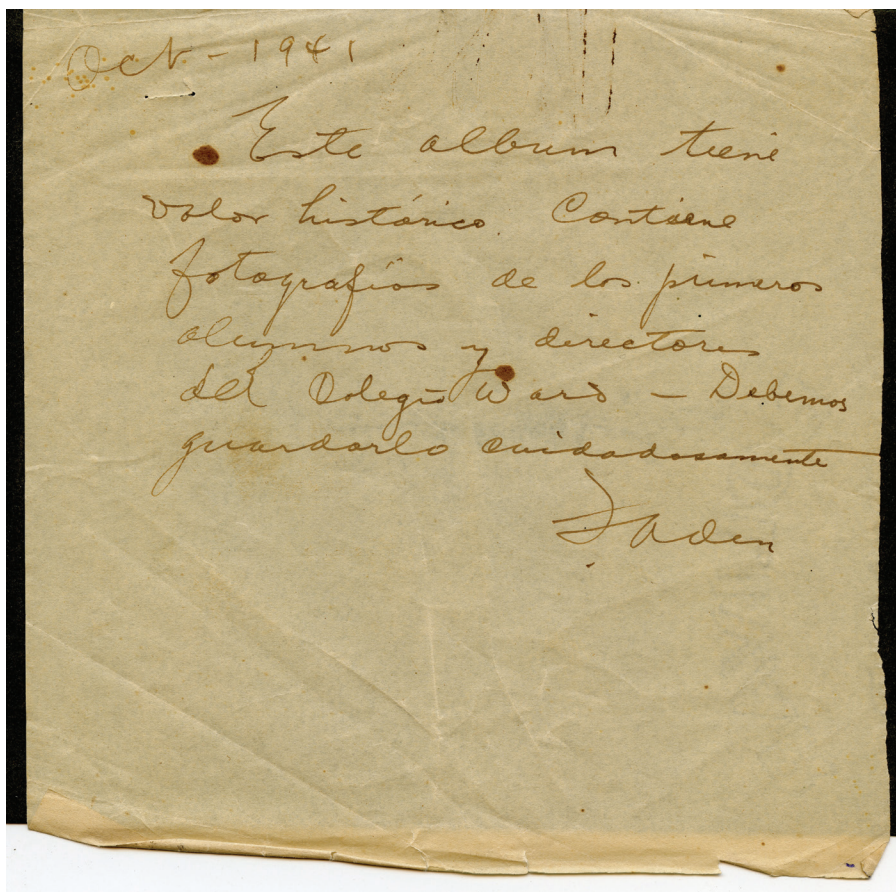 Oct - 1941
Este album tiene
valor histórico. Contiene
fotografías de los primeros
alumnos y directores
del Colegio Ward - Debemos
guardarlo cuidadosamente
F Aden